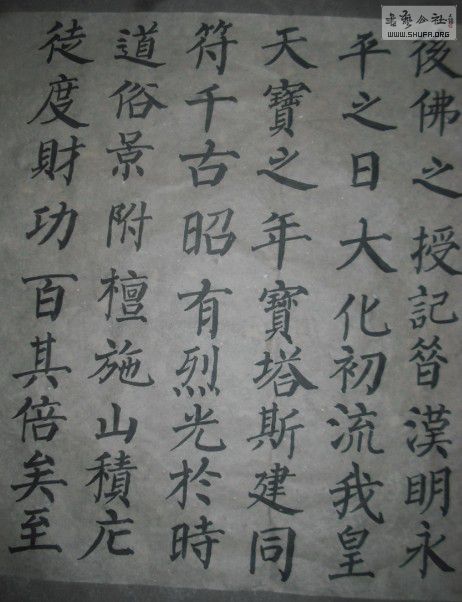 書藝公社
WWW.SHUFA.ORG
後佛之授記昔漢明永
平之日大化初流我皇
天寶之年寶塔斯建同
符千古昭有烈光於時
道俗景附檀施山積庀
徒度財功百其倍矣至